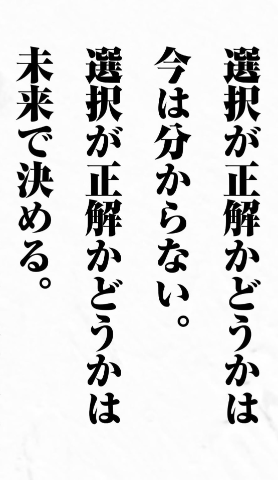 選択が正解かどうかは
今は分からない。
選択が正解かどうかは
未来で決める。